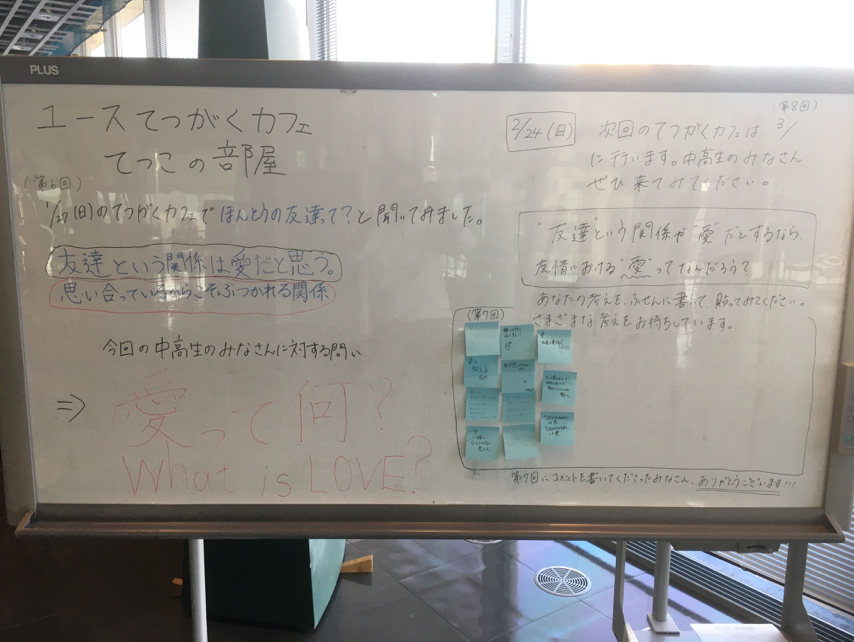 PLUS
ユースてつがくカフェ
てつこの部屋
(第6回)
1/27(日)のてつがくカフェでほんとうの友達って?と聞いてみました。
友達という関係は愛だと思う。
思い合っているからこそぶつかれる関係
今回の中高生のみなさんに対する問い
⇒ 愛って何?
What is LOVE?
(第8回)
2/24(日) 次回のてつがくカフェは 3/
に行います。中高生のみなさん
ぜひ来てみてください。
"友達"という関係が"愛"だとするなら、
友情における"愛"ってなんだろう?
あなたの考えを、ふせんに書いて、貼ってみてください。
さまざまな考えをお待ちしています。
(第7回)
第7回にコメントを書いてくださったみなさん、ありがとうございます!!!